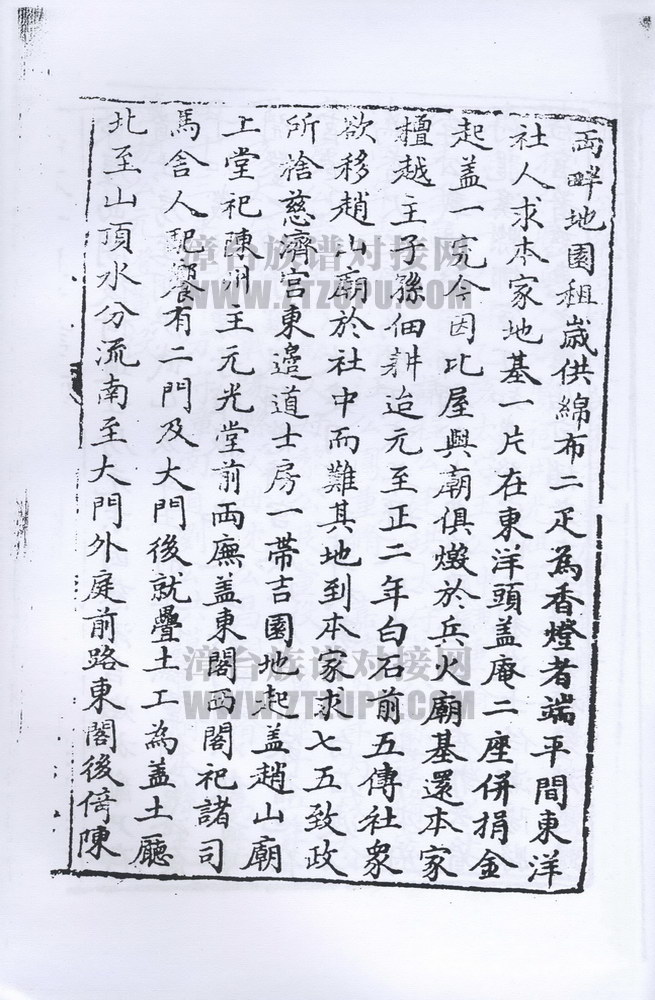 兩畔地園租歲供綿布二疋為香燈者端平間東洋
社人求本家地基一片在東洋頭蓋庵二座併捐金
起盖一完今因比屋與廟俱燬於兵火廟基還本家
檀越主子孫佃耕迨元至正二年白石前五傳社衆
欲移趙山廟於社中而難其地到本家求七五致政
所捨慈濟宮東邊道士房一帶吉園地起盖趙山廟
上堂祀陳州王元光堂前両廡盖東閣西閣祀諸司
馬舍人配饗有二門及大門後就疊土工為盖土廳
北至山頂水分流南至大門外庭前路東閣後倚陳
漳台族谱对接网
WWW.ZTZUPU.COM
漳台族谱对接网
WWW.ZTZUPU.COM